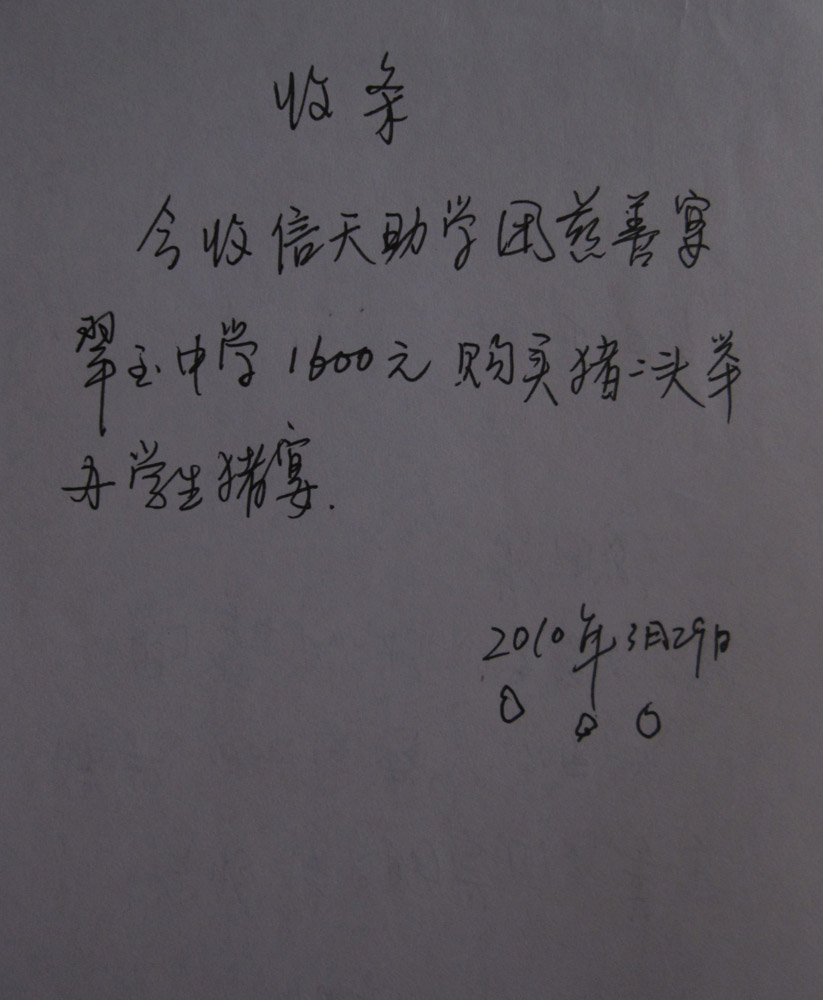 收条
今收信天助学团慈善宴
翠玉中学1600元购买猪二头举
办学生猪宴.
2010年3月29日